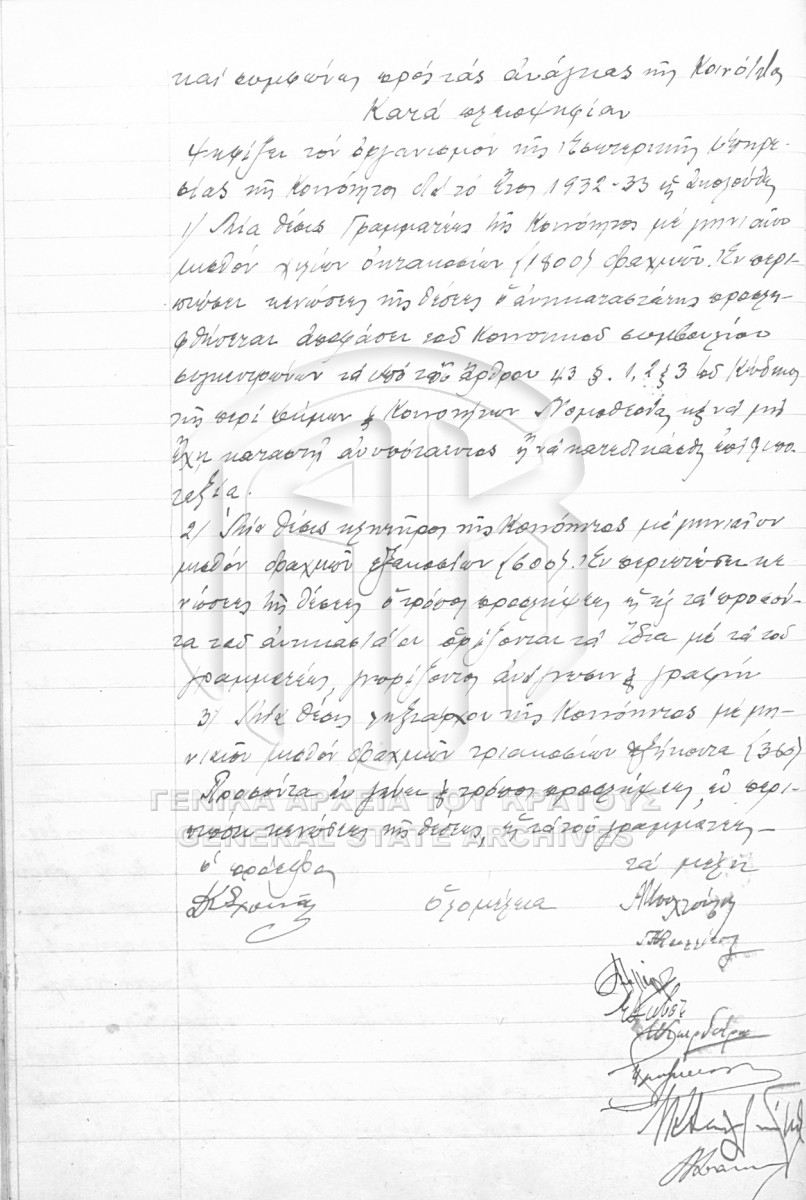 καί συμφώνως πρός τάς ἀνάγκας τῆς Κοινότητος
Κατά πλειοψηφίαν
Ψηφίζει τόν ὀργανισμόν τῆς Ἐσωτερικῆς Ὑπηρε-
σίας τῆς Κοινότητος διά τό ἔτος 1932-33 ὡς ἀκολούθως
1) Μία θέσις Γραμματέως τῆς Κοινότητος μέ μηνιαῖον
μισθόν χιλίων ὀκτακοσίων (1800) δραχμῶν. Ἐν περι-
πτώσει κενώσεως τῆς θέσεως ὁ ἀντικαταστάτης προσλη-
φθήσεται ἀποφάσει τοῦ Κοινοτικοῦ συμβουλίου
συγκεντρώνων τά ὑπό τοῦ ἄρθρου 43 §. 1, 2 & 3 τοῦ Κώδικος
τῆς περί Δήμων & Κοινοτήτων Νομοθεσίας καί νά μή
ἔχη καταστῆ ἀνυπότακτος ἤ νά κατεδικάσθη ἐπί λιπο-
ταξία.
2) Μία θέσις κλητῆρος τῆς Κοινότητος μέ μηνιαῖον
μισθόν δραχμῶν ἑξακοσίων (600). Ἐν περιπτώσει κε-
νώσεως τῆς θέσεως ὁ τρόπος προσλήψεως καί τά προσόν-
τα τοῦ ὁρίζονται τά ἴδια μέ τά τοῦ
γραμματέως, γνωρίζοντος ἀνάγνωσιν & γραφήν
3) Μία θέσις ληξιάρχου τῆς Κοινότητος μέ μη-
νιαῖον μισθόν δραχμῶν τριακοσίων ἑξήκοντα (360)
Προσόντα ἐν γένει & τρόπος προσλήψεως, ἐν περι-
πτώσει κενώσεως τῆς θέσεως, ὡς τά τοῦ γραμματέως
ΓΕΝΙΚΑ ΑΡΧΕΙΑ ΤΟΥ ΚΡΑΤΟΥΣ
GENERAL STATE ARCHIVES
ὁ πρόεδρος
τά μέλη